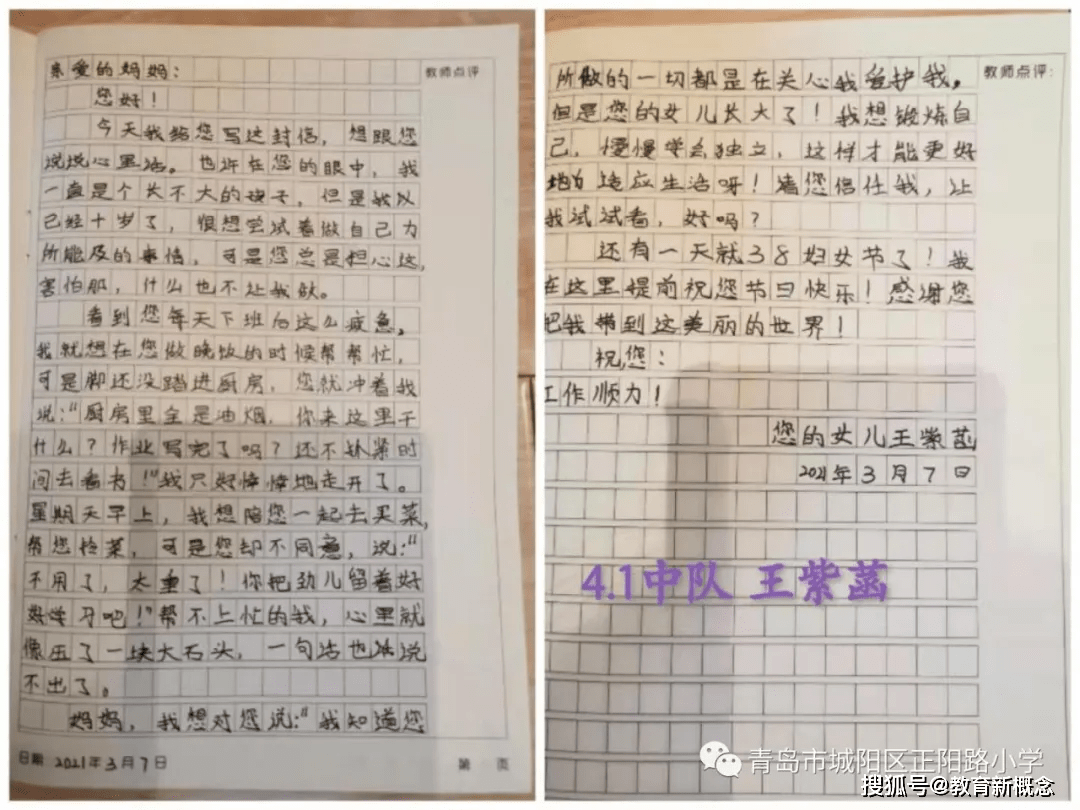 亲爱的妈妈：
教师点评
您好！
今天我给您写这封信，想跟您
说说心里话。也许在您的眼中，我
一直是个长不大的孩子，但是我以
已经十岁了，很想尝试着做自己力
所能及的事情，可是您总是担心这，
害怕那，什么也不让我做。
看到您每天下班后这么疲惫，
我就想在您做晚饭的时候帮帮忙，
可是脚还没踏进厨房，您就冲着我
说：“厨房里全是油烟，你来这里干
什么？作业写完了吗？还不抓紧时
间去看书！”我只好悻悻地走开了。
星期天早上，我想陪您一起去买菜，
帮您拎菜，可是您却不同意，说：“
不用了，太重了！你把劲儿留着好
好学习吧！”帮不上忙的我，心里就
像压了一块大石头，一句话也说
不出了。
妈妈，我想对您说：“我知道您
日期 2021年3月7日
第 页
所做的一切都是在关心我爱护我，
教师点评：
但是您的女儿长大了！我想锻炼自
己，慢慢学会独立，这样才能更好
地适应生活呀！请您信任我，让
我试试看，好吗？
还有一天就38妇女节了！我
在这里提前祝您节日快乐！感谢您
把我带到这美丽的世界！
祝您：
工作顺力！
您的女儿王紫菡
2021年3月7日
4.1中队 王紫菡
青岛市城阳区正阳路小学
搜狐号@教育新概念